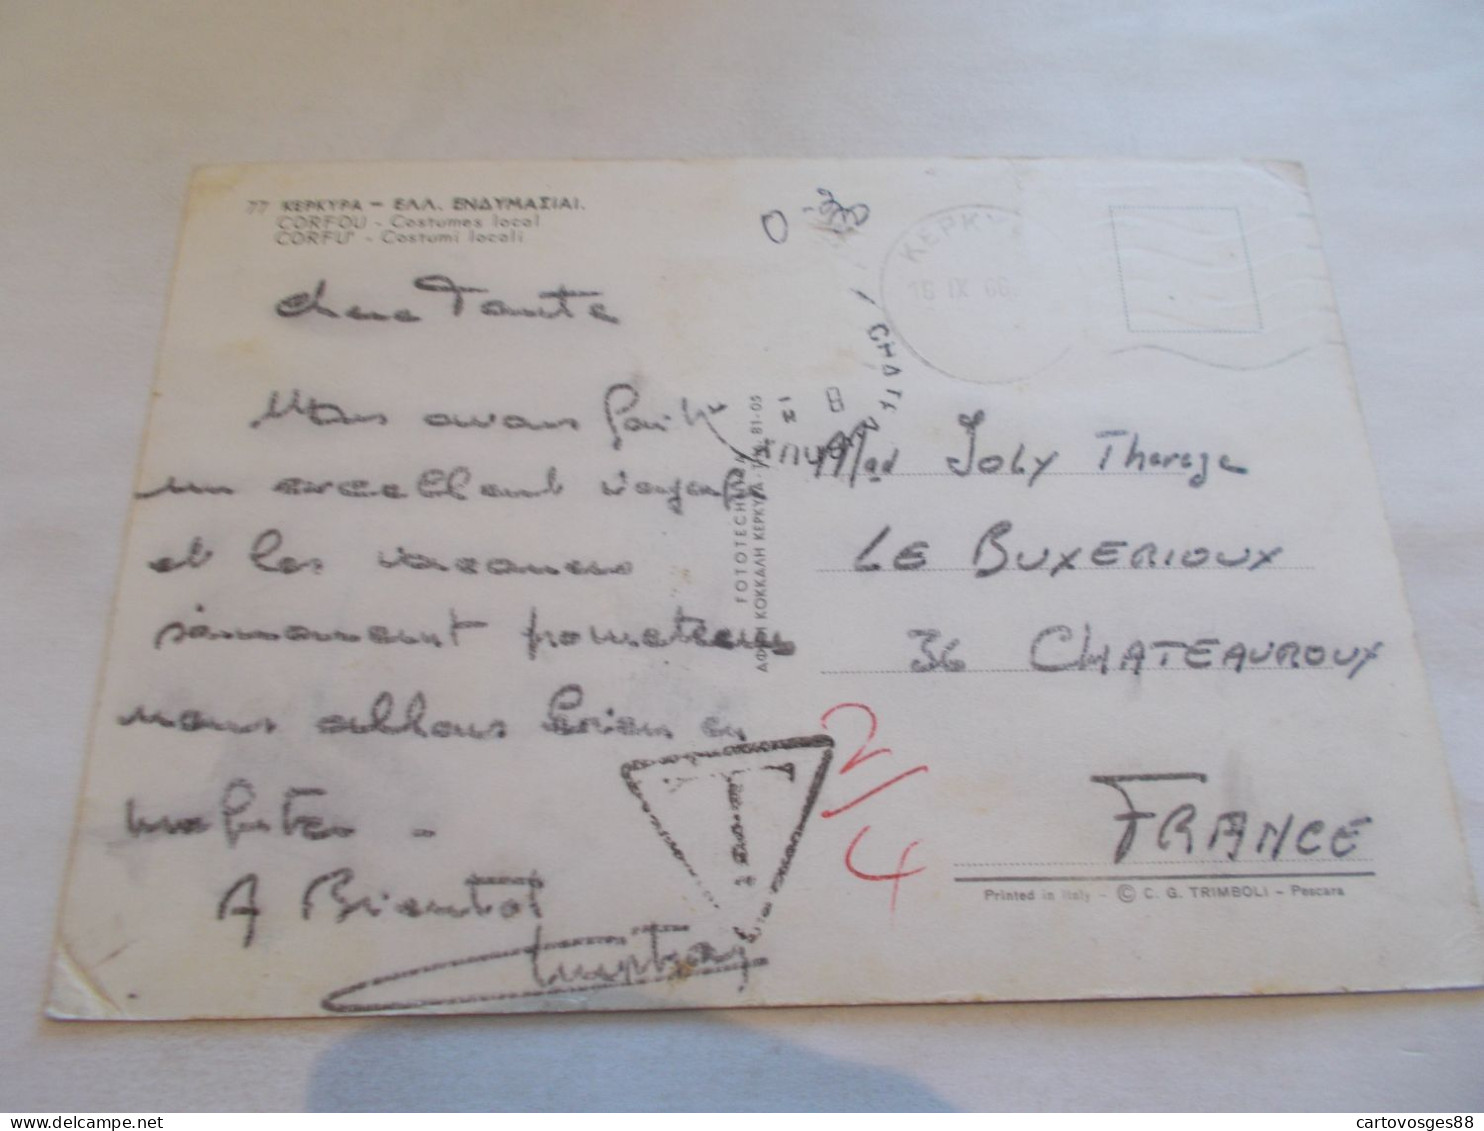 77 ΚΕΡΚΥΡΑ – ΕΛΛ. ΕΝΔΥΜΑΣΙΑΙ.
CORFOU - Costumes local
CORFU' - Costumi locali
0-30
ΚΕΡΚΥ
16 IX 66
Chere Tante
Nous avons fait
un excellent voyage
et les vacances
s'annoncent prometteuses
nous allons bien en
profiter -
A Bientot
FOTOTECHNIKA
ΑΦΟΙ ΚΟΚΚΑΛΗ ΚΕΡΚΥΡΑ - ΤΗΛ. 81-05
Mad JOLY Thereze
LE BUXERIOUX
36 CHATEAUROUX
FRANCE
T
2/4
Printed in Italy - © C. G. TRIMBOLI - Pescara
cartovosges88